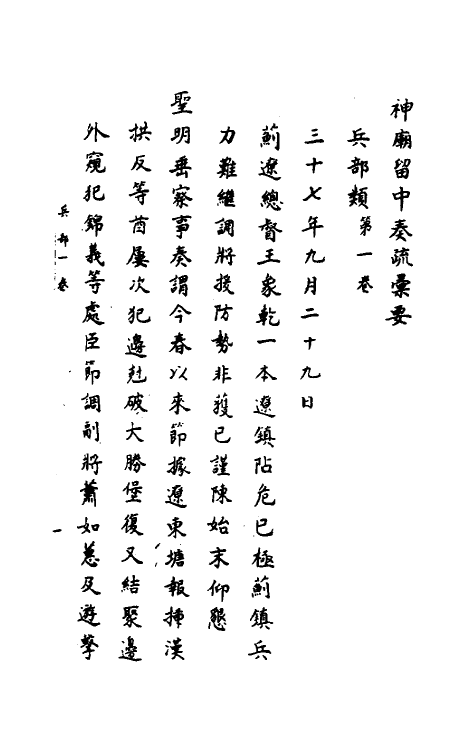 神廟留中奏疏彙要
兵部類第一卷
三十七年九月二十九日
薊遼總督王象乾一本遼鎮阽危已極薊鎮兵
力難繼調將授防勢非獲已謹陳始末仰懇
聖明垂察事奏謂今春以來節據遼東塘報揷漢
拱反等酋屢次犯邊尅破大勝堡復又結聚邊
外窺犯錦義等處臣節調副將蕭如蕙及遊擊
兵部一卷
一